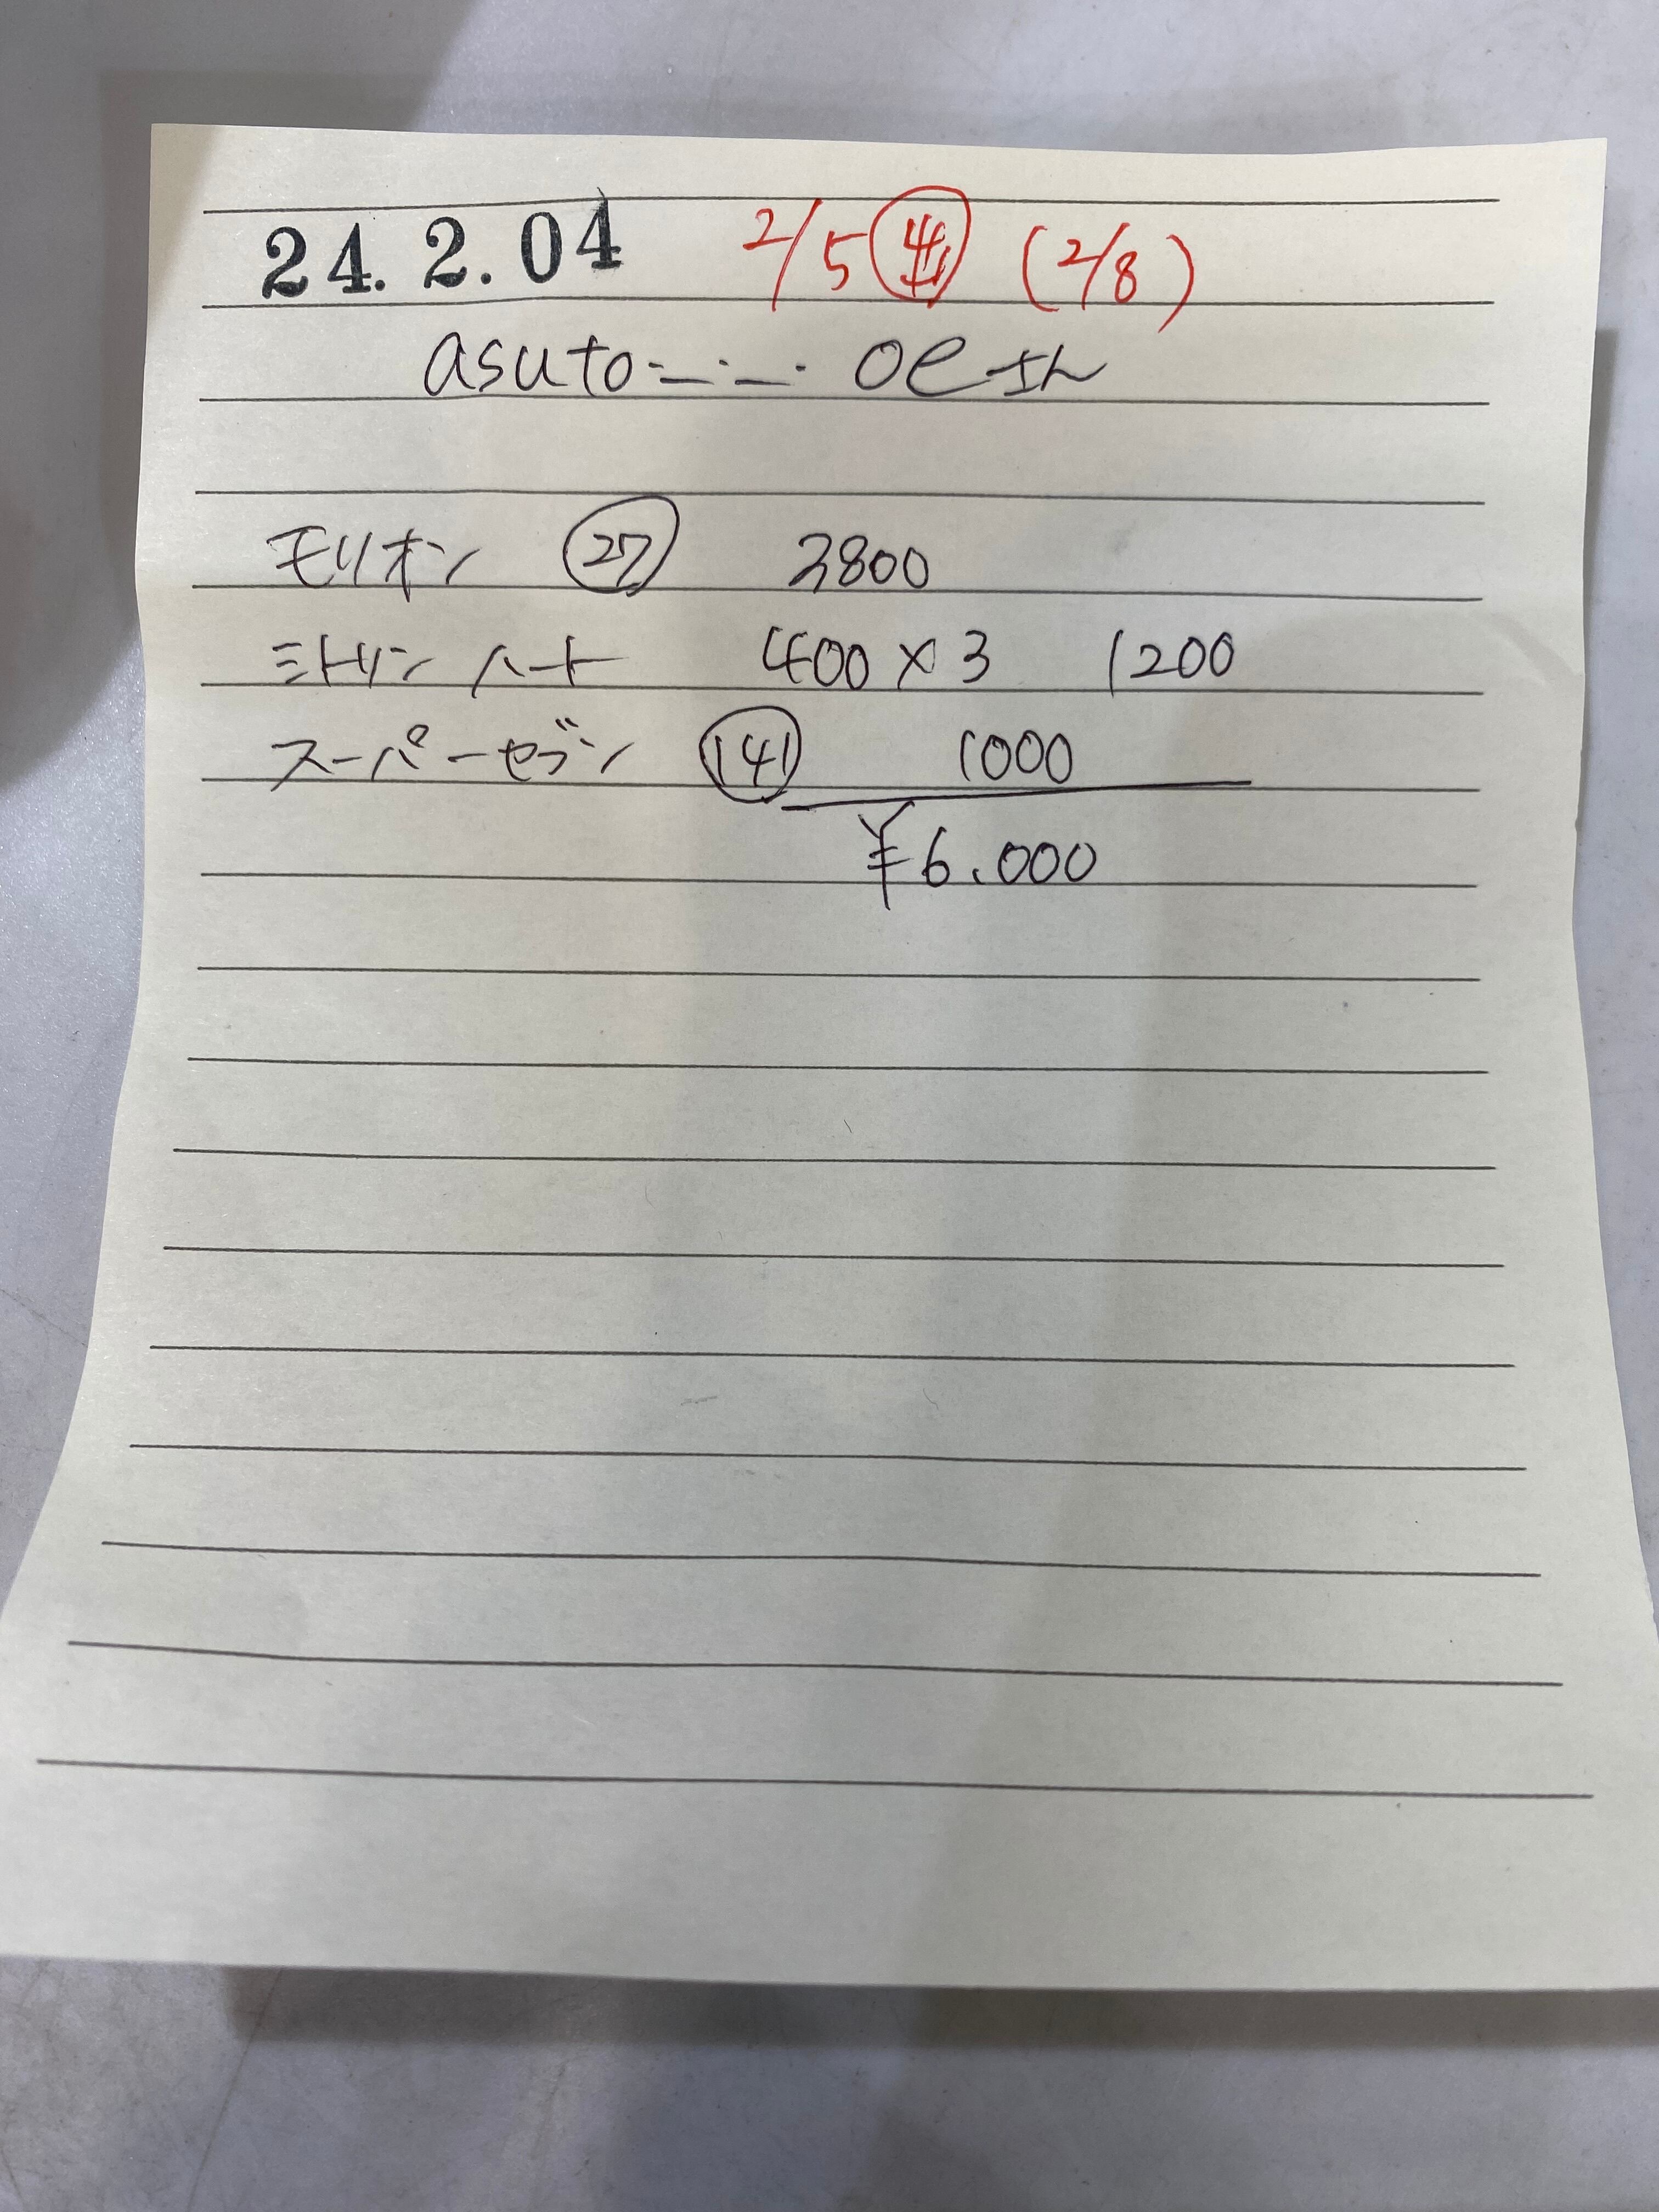 24. 2. 04 2/5 出 (2/8)
asuto-_._. oeさん
モリオン 27 3800
シトリン ハート 400×3 1200
スーパーセブン 141 1000
¥6.000